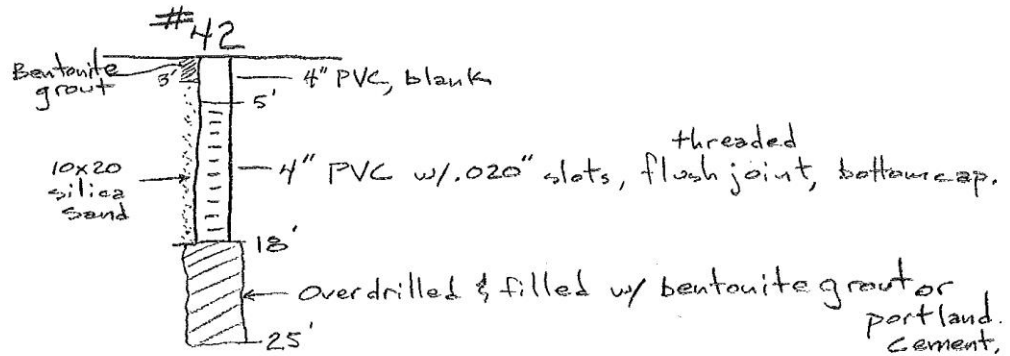 #42
Bentonite
grout
3'
4" PVC, blank
5'
10x20
silica
sand
threaded
4" PVC w/.020" slots, flush joint, bottom cap.
18'
Overdrilled & filled w/ bentonite grout or
portland.
cement,
25'